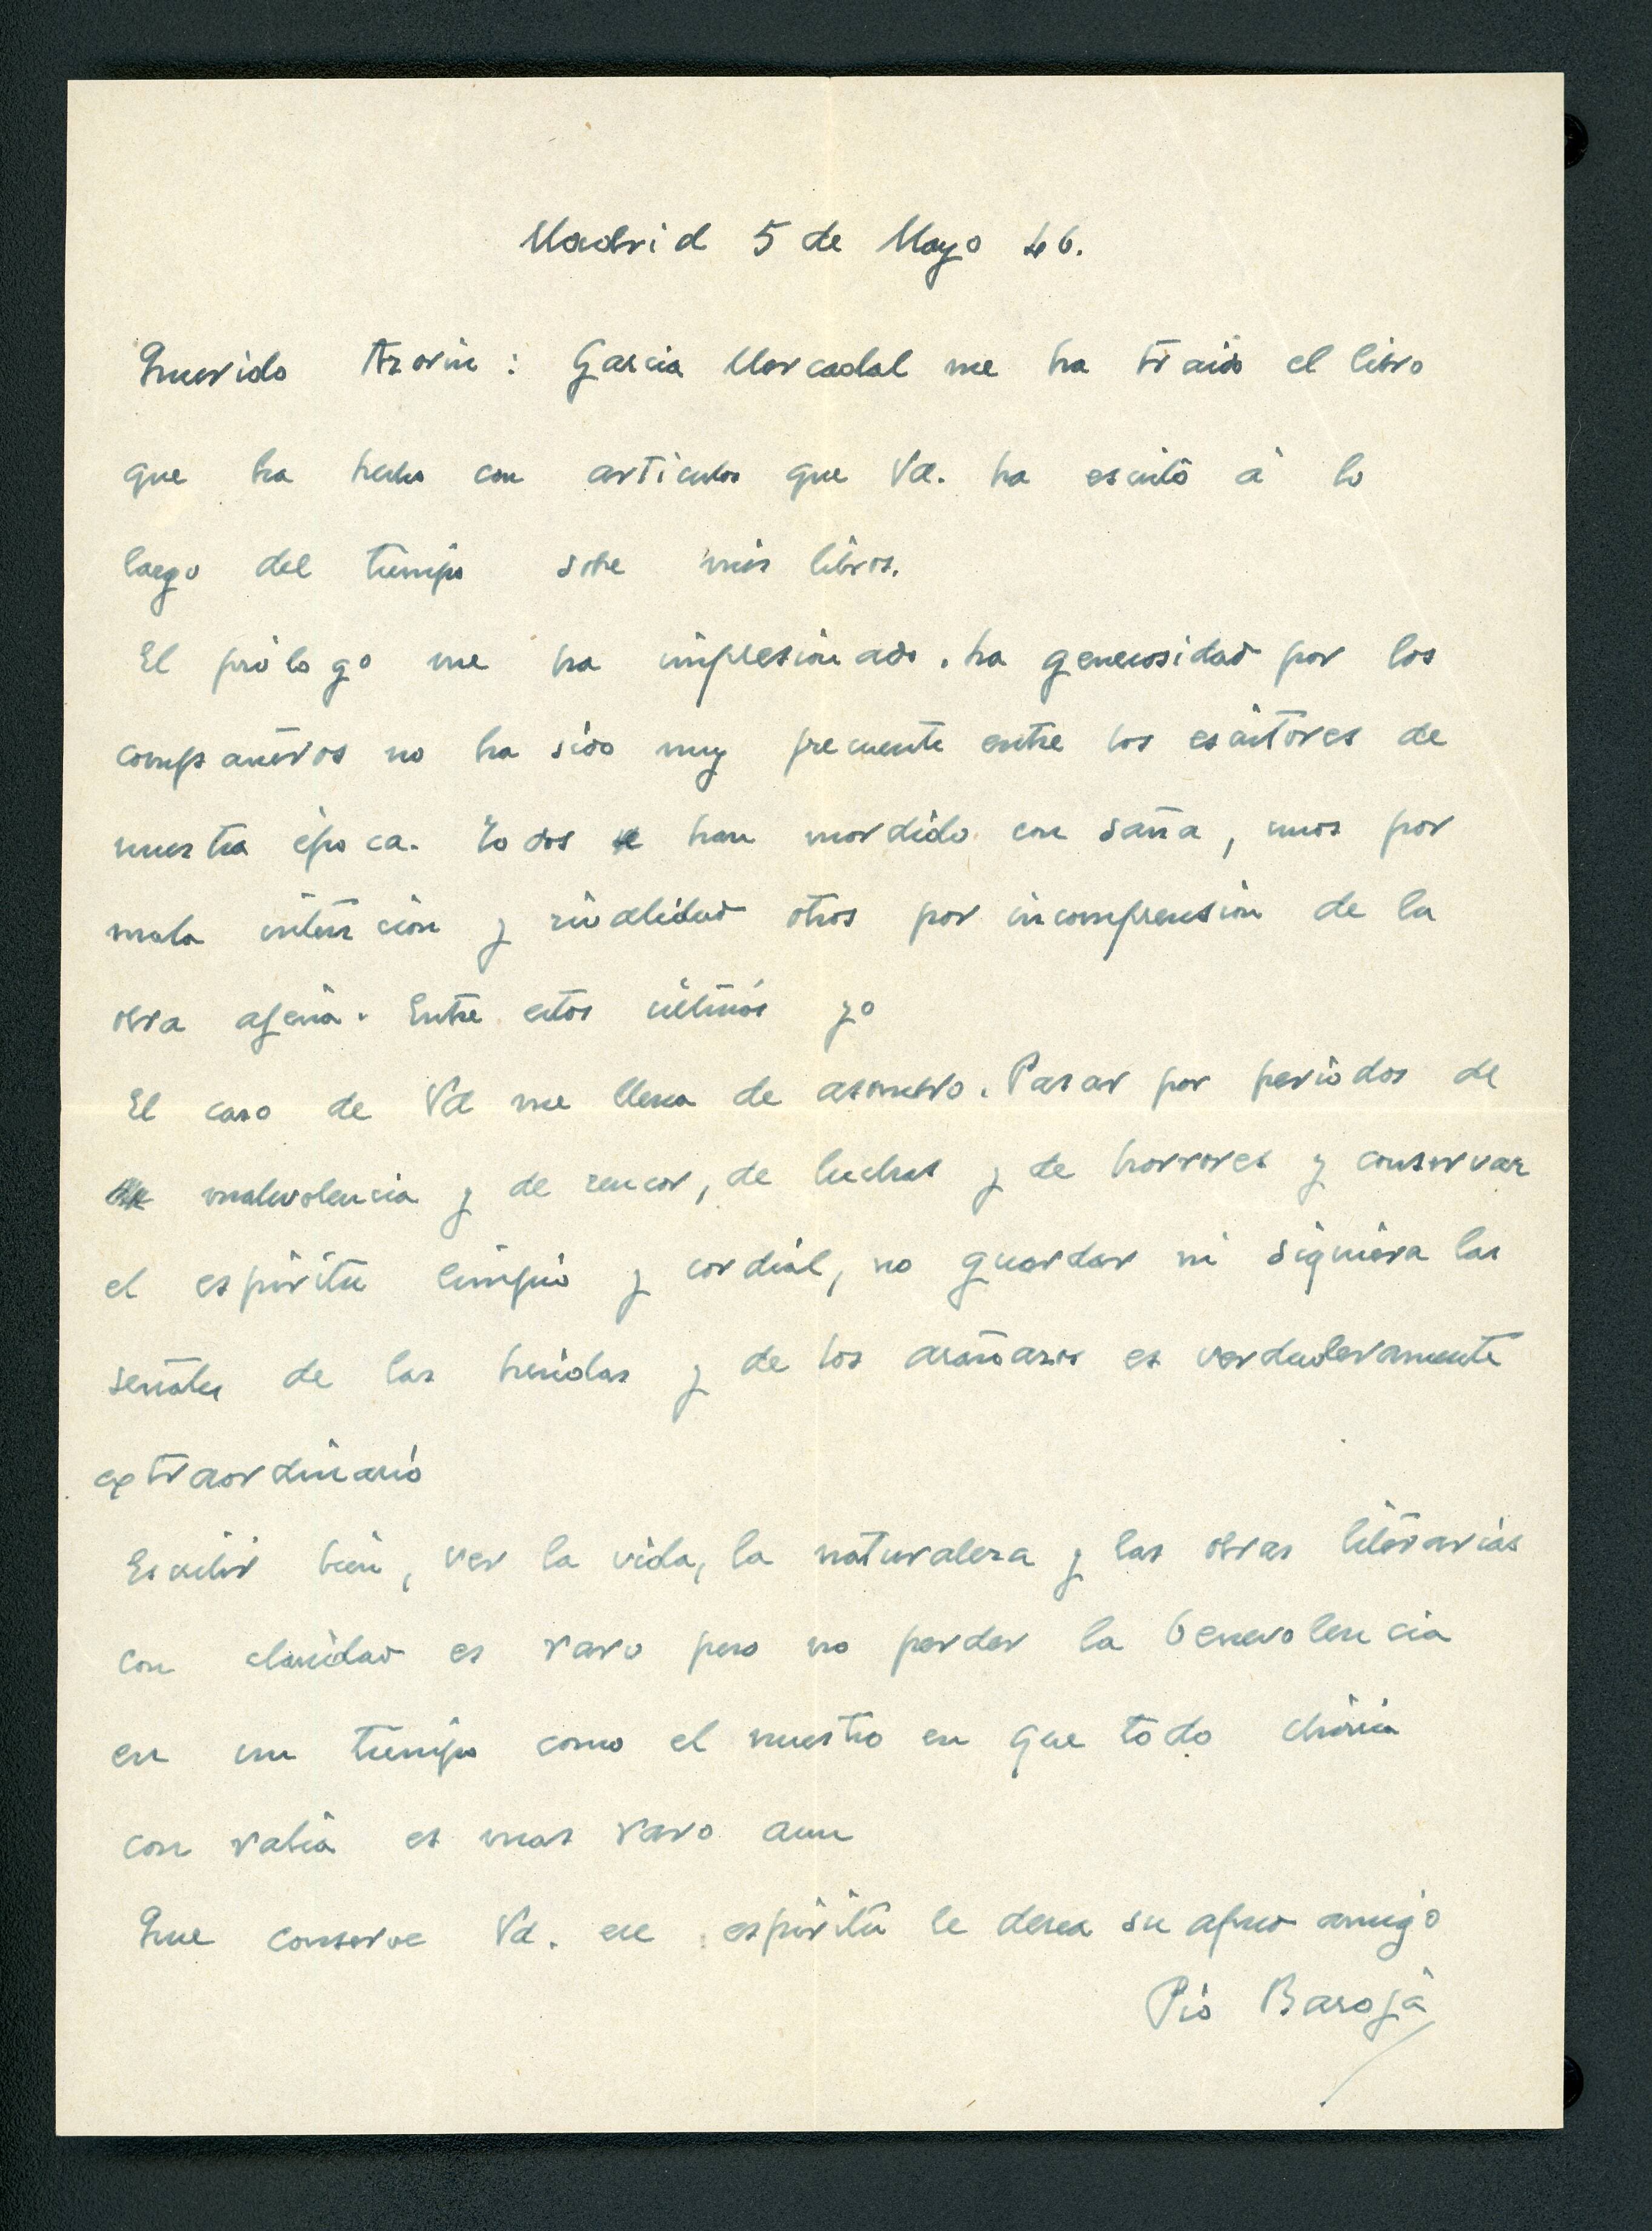 Madrid 5 de Mayo 46.
Querido Azorin: Garcia Mercadal me ha traido el libro
que ha hecho con articulos que Vd. ha escrito á lo
largo del tiempo sobre mis libros.
El prólogo me ha impresionado. La generosidad por los
compañeros no ha sido muy frecuente entre los escritores de
nuestra época. Todos se han mordido con saña, unos por
mala intención y rivalidad otros por incomprensión de la
obra agena. Entre estos últimos yo
El caso de Vd me llena de asombro. Pasar por periodos de
malevolencia y de rencor, de luchas y de horrores y conservar
el espiritu limpio y cordial, no guardar ni siquiera las
señales de las heridas y de los arañazos es verdaderamente
extraordinario
Escribir bien, ver la vida, la naturaleza y las obras literarias
con claridad es raro pero no perder la benevolencia
en un tiempo como el nuestro en que todo chirria
con rabia es mas raro aun
Que conserve Vd. ese espiritu le desea su afmo amigo
Pio Baroja